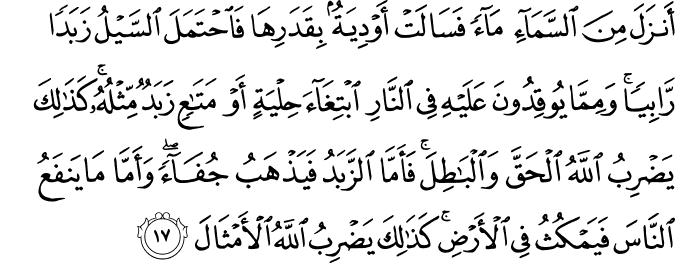 أَنزَلَ مِنَ ٱلسَّمَآءِ مَآءً فَسَالَتْ أَوْدِيَةٌۢ بِقَدَرِهَا فَٱحْتَمَلَ ٱلسَّيْلُ زَبَدًا
رَّابِيًا ۚ وَمِمَّا يُوقِدُونَ عَلَيْهِ فِى ٱلنَّارِ ٱبْتِغَآءَ حِلْيَةٍ أَوْ مَتَٰعٍ زَبَدٌ مِّثْلُهُۥ ۚ كَذَٰلِكَ
يَضْرِبُ ٱللَّهُ ٱلْحَقَّ وَٱلْبَٰطِلَ ۚ فَأَمَّا ٱلزَّبَدُ فَيَذْهَبُ جُفَآءً ۖ وَأَمَّا مَا يَنفَعُ
ٱلنَّاسَ فَيَمْكُثُ فِى ٱلْأَرْضِ ۚ كَذَٰلِكَ يَضْرِبُ ٱللَّهُ ٱلْأَمْثَالَ ١٧